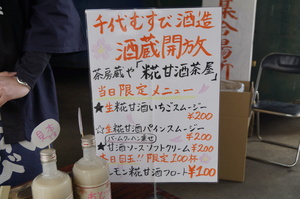 千代むすび酒造
酒蔵開放
茶房蔵や「糀甘酒茶屋」
当日限定メニュー
★生糀甘酒いちごスムージー
¥200
☆生糀甘酒パインスムージー
(バームクーヘン乗せ)
¥200
★甘酒ソースソフトクリーム ¥200
本日目玉!!限定100杯
レモン糀甘酒フロート¥100
集合場所
見本